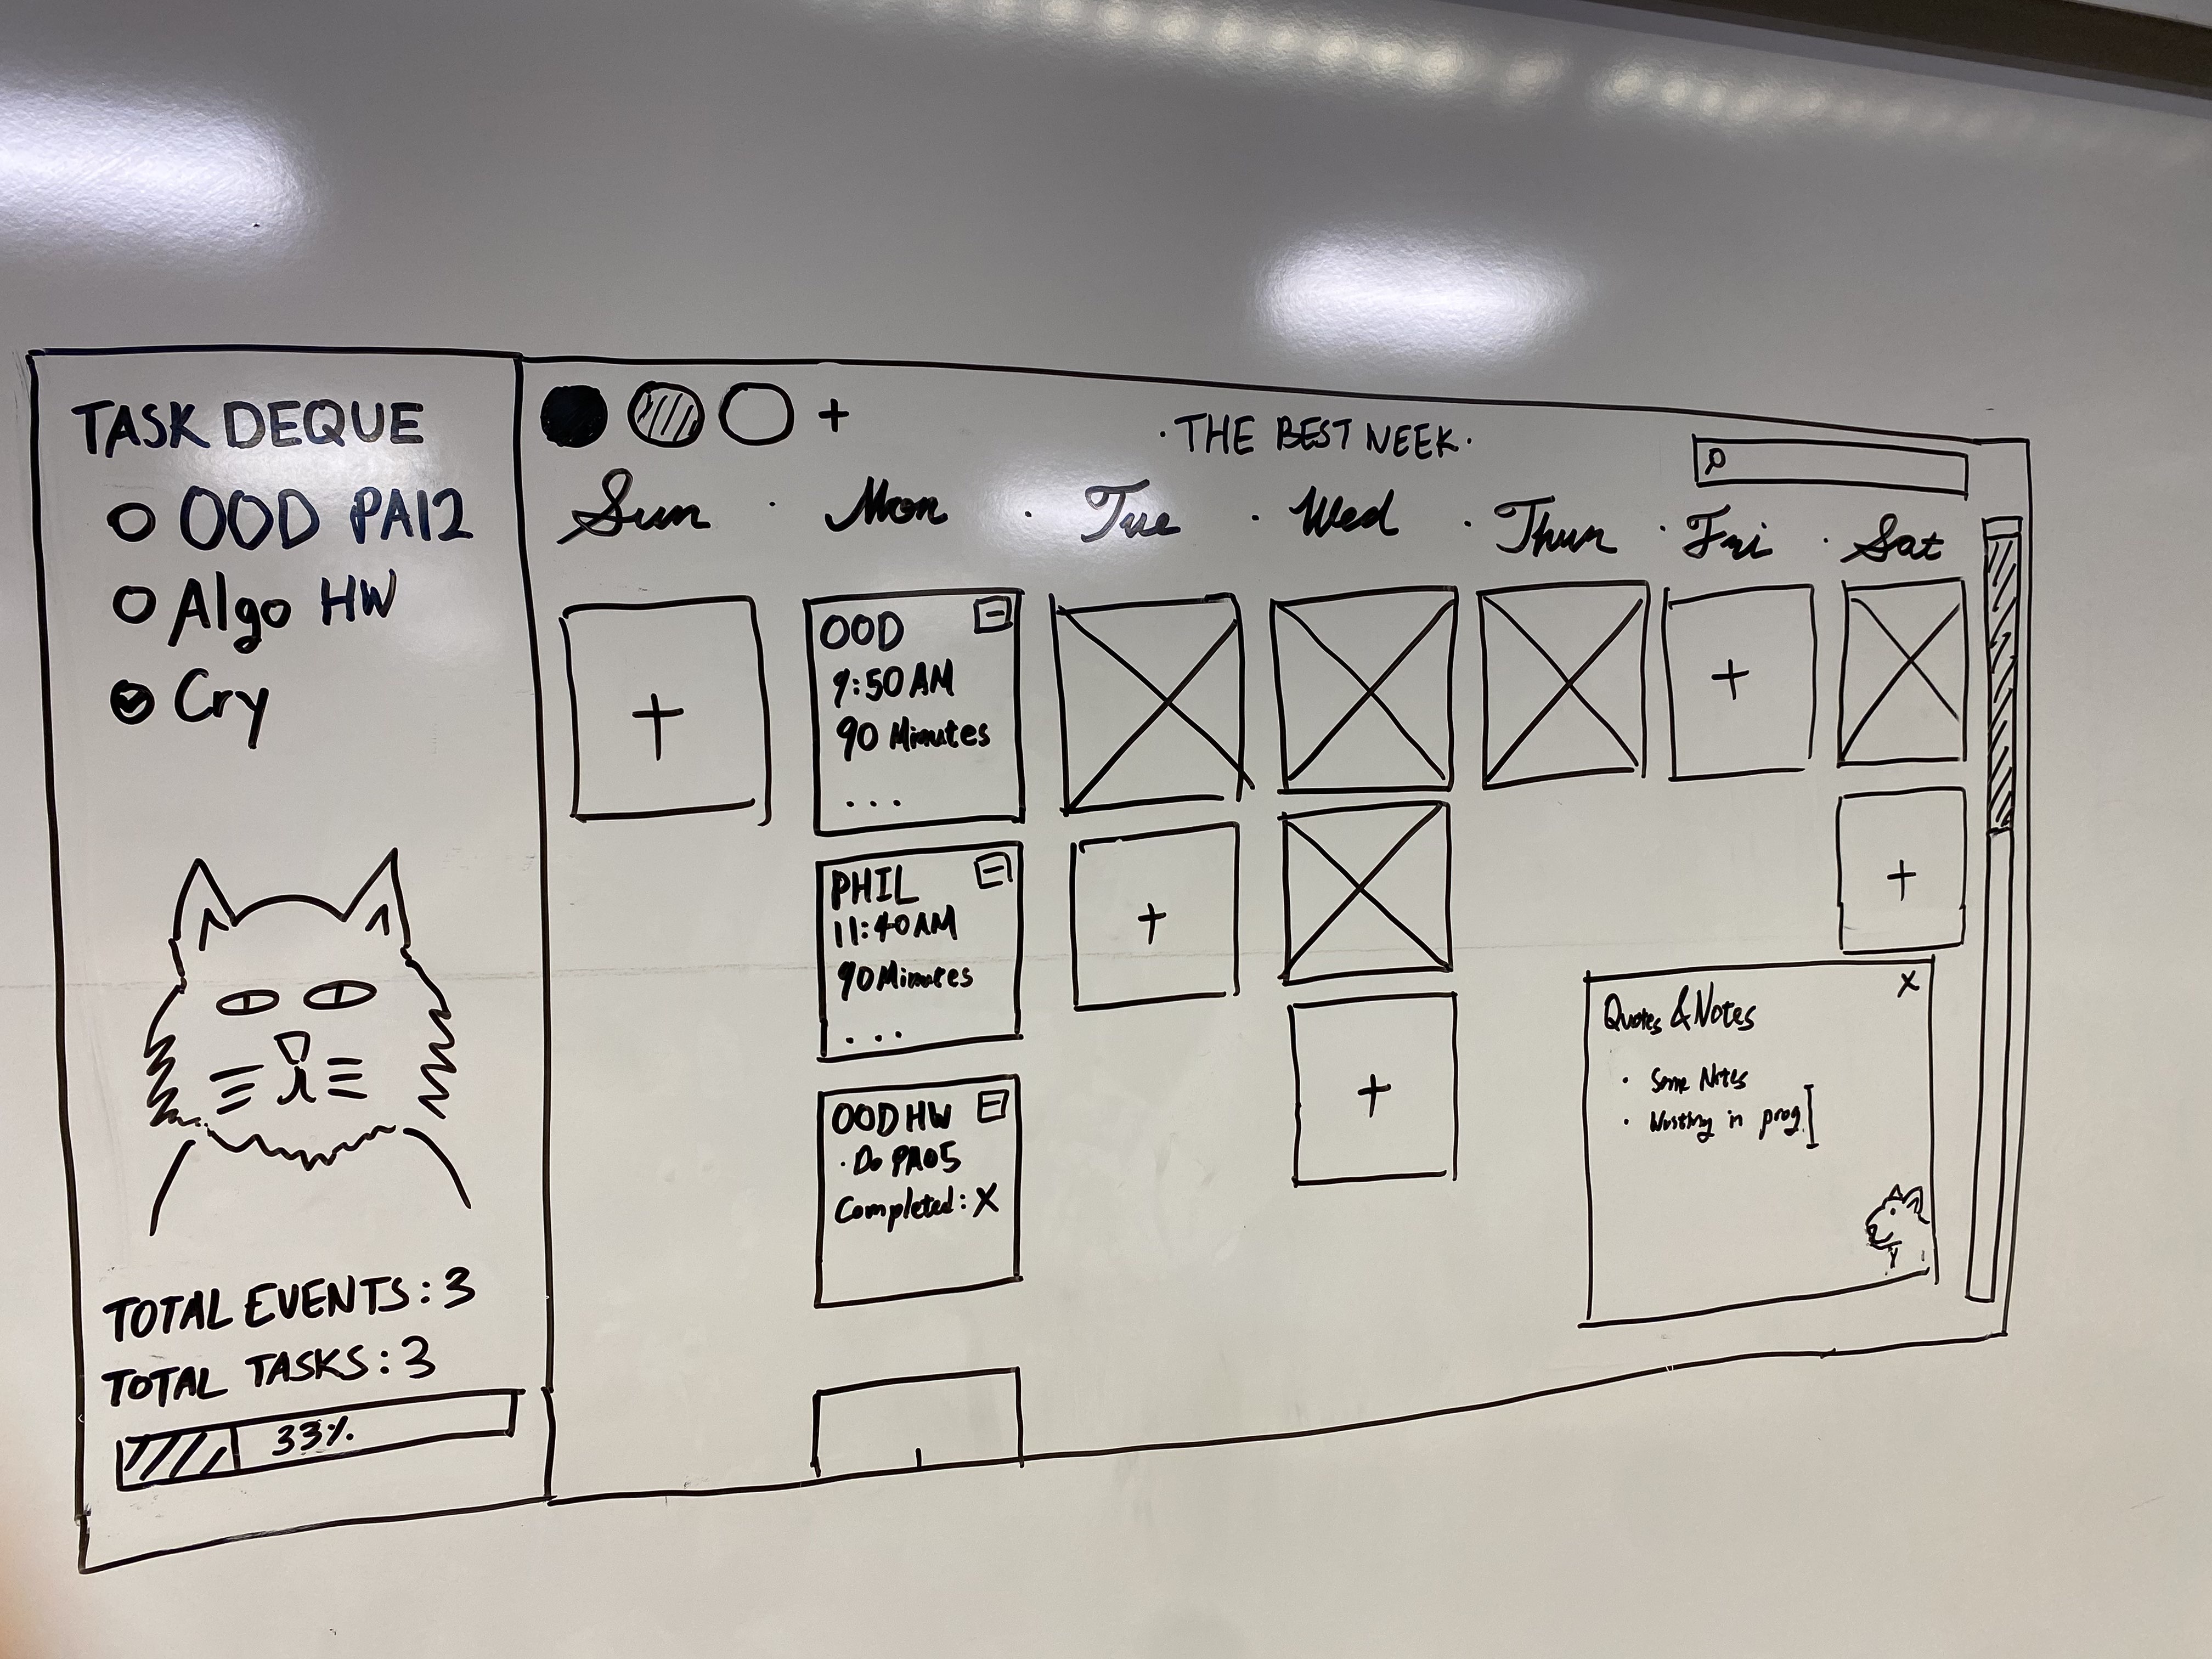 TASK DEQUE
OOD PA12
Algo HW
Cry
TOTAL EVENTS: 3
TOTAL TASKS: 3
33%
+
· THE BEST NEEK ·
Sun · Mon · Tue · Wed · Thur · Fri · Sat
+
OOD
9:50 AM
90 Minutes
...
PHIL
11:40 AM
90 Minutes
...
OOD HW
· Do PA05
Completed: X
+
+
+
+
X
Quotes & Notes
· Some Notes
· Writing in prog.